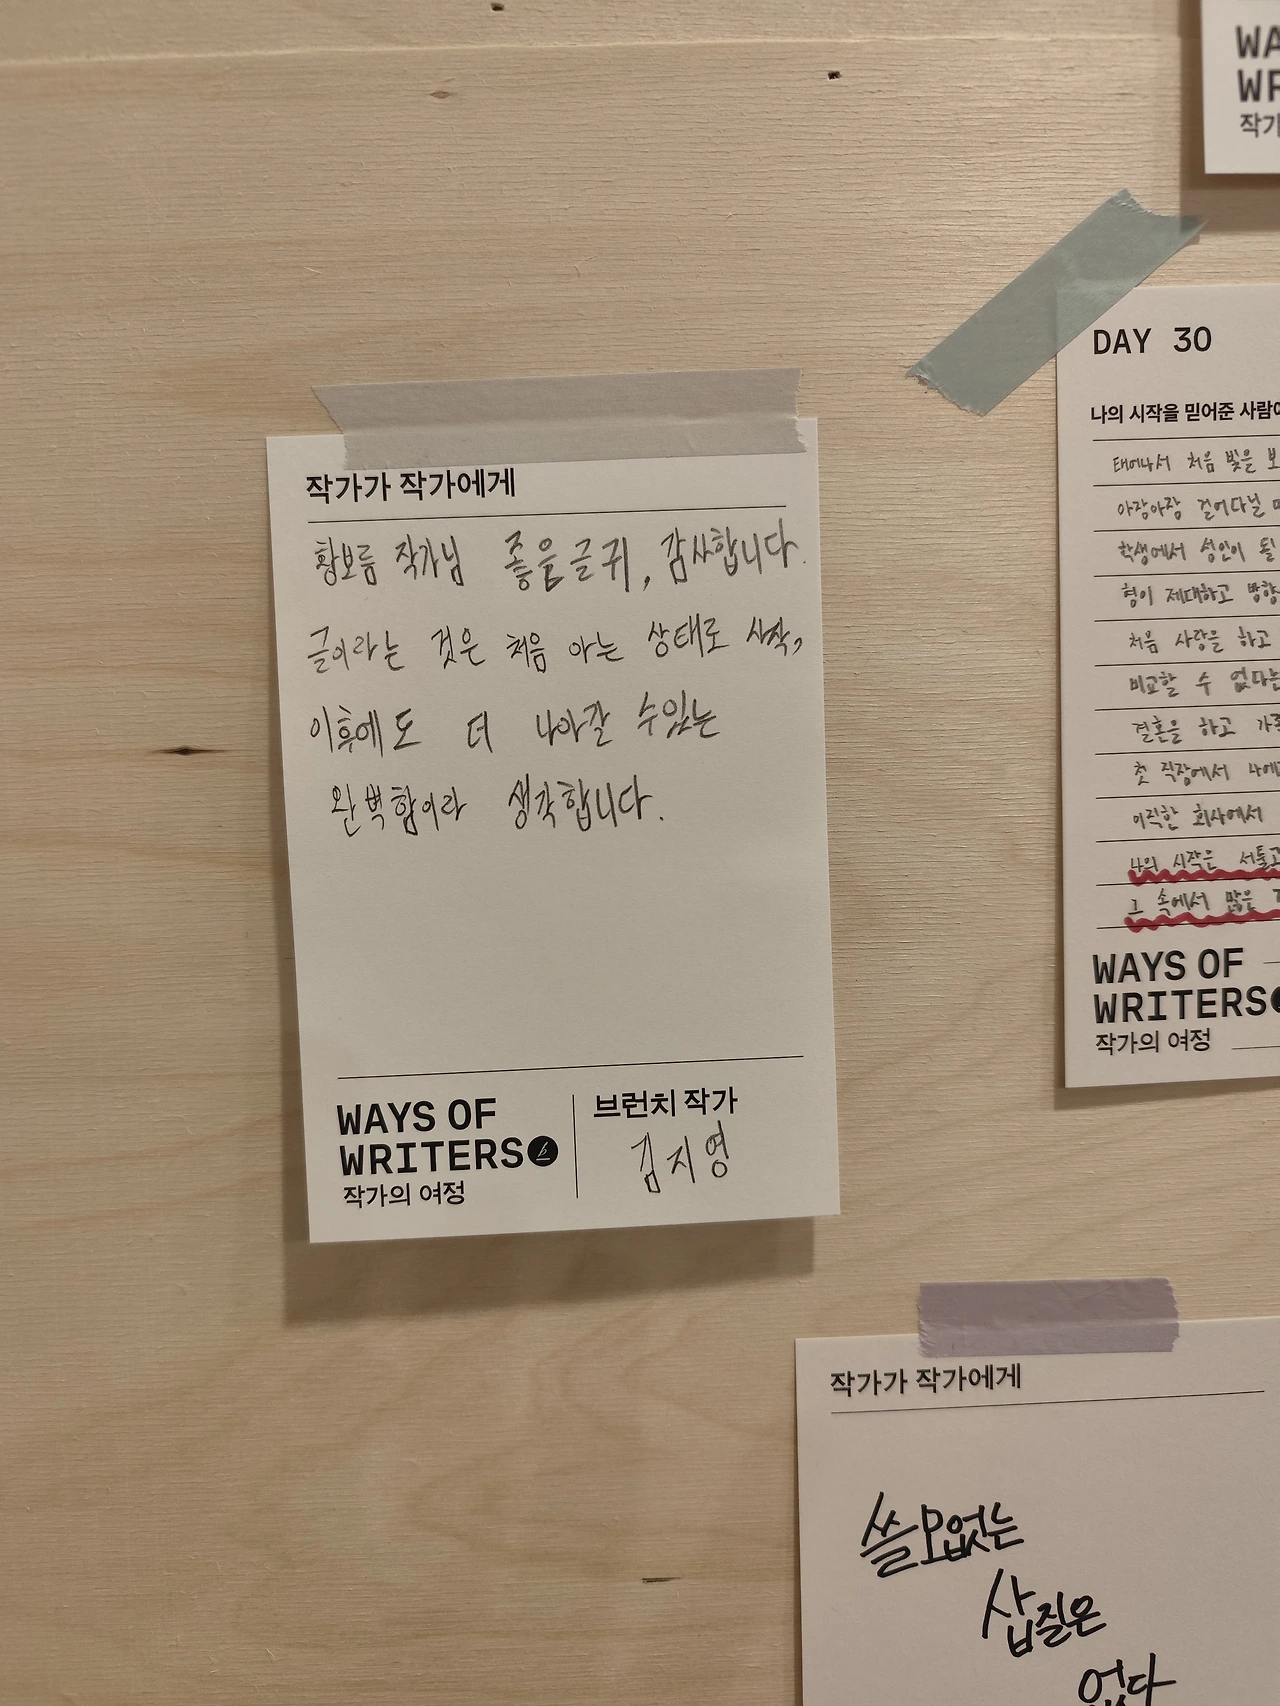 WA
WR
작가
작가가 작가에게
황보름 작가님 좋을글귀, 감사합니다.
글이라는 것은 처음 아는 상태로 시작,
이후에도 더 나아갈 수있는
완벽함이라 생각합니다.
WAYS OF
WRITERS
작가의 여정
브런치 작가
김지영
DAY 30
나의 시작을 믿어준 사람에
태어나서 처음 빛을 보
아장아장 걸어다닐 때
학생에서 성인이 될
형이 제대하고 방향
처음 사랑을 하고
비교할 수 없다는
결혼을 하고 가족
첫 직장에서 나에
이직한 회사에서
나의 시작은 서툴고
그 속에서 많은
WAYS OF
WRITERS
작가의 여정
작가가 작가에게
쓸모없는
삽질은
없다